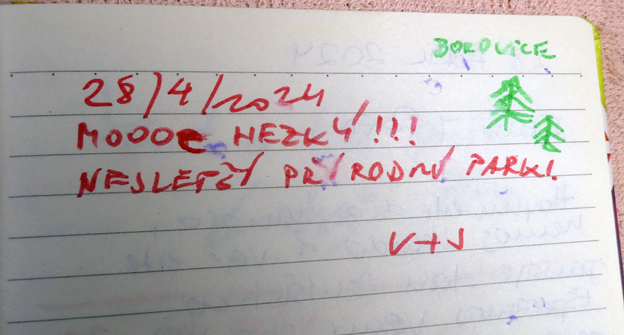 BOROVICE
28/4/2024
MOOOC HEZKÝ!!!
NEJLEPŠÍ PŘÍRODNÍ PARK!
V+J